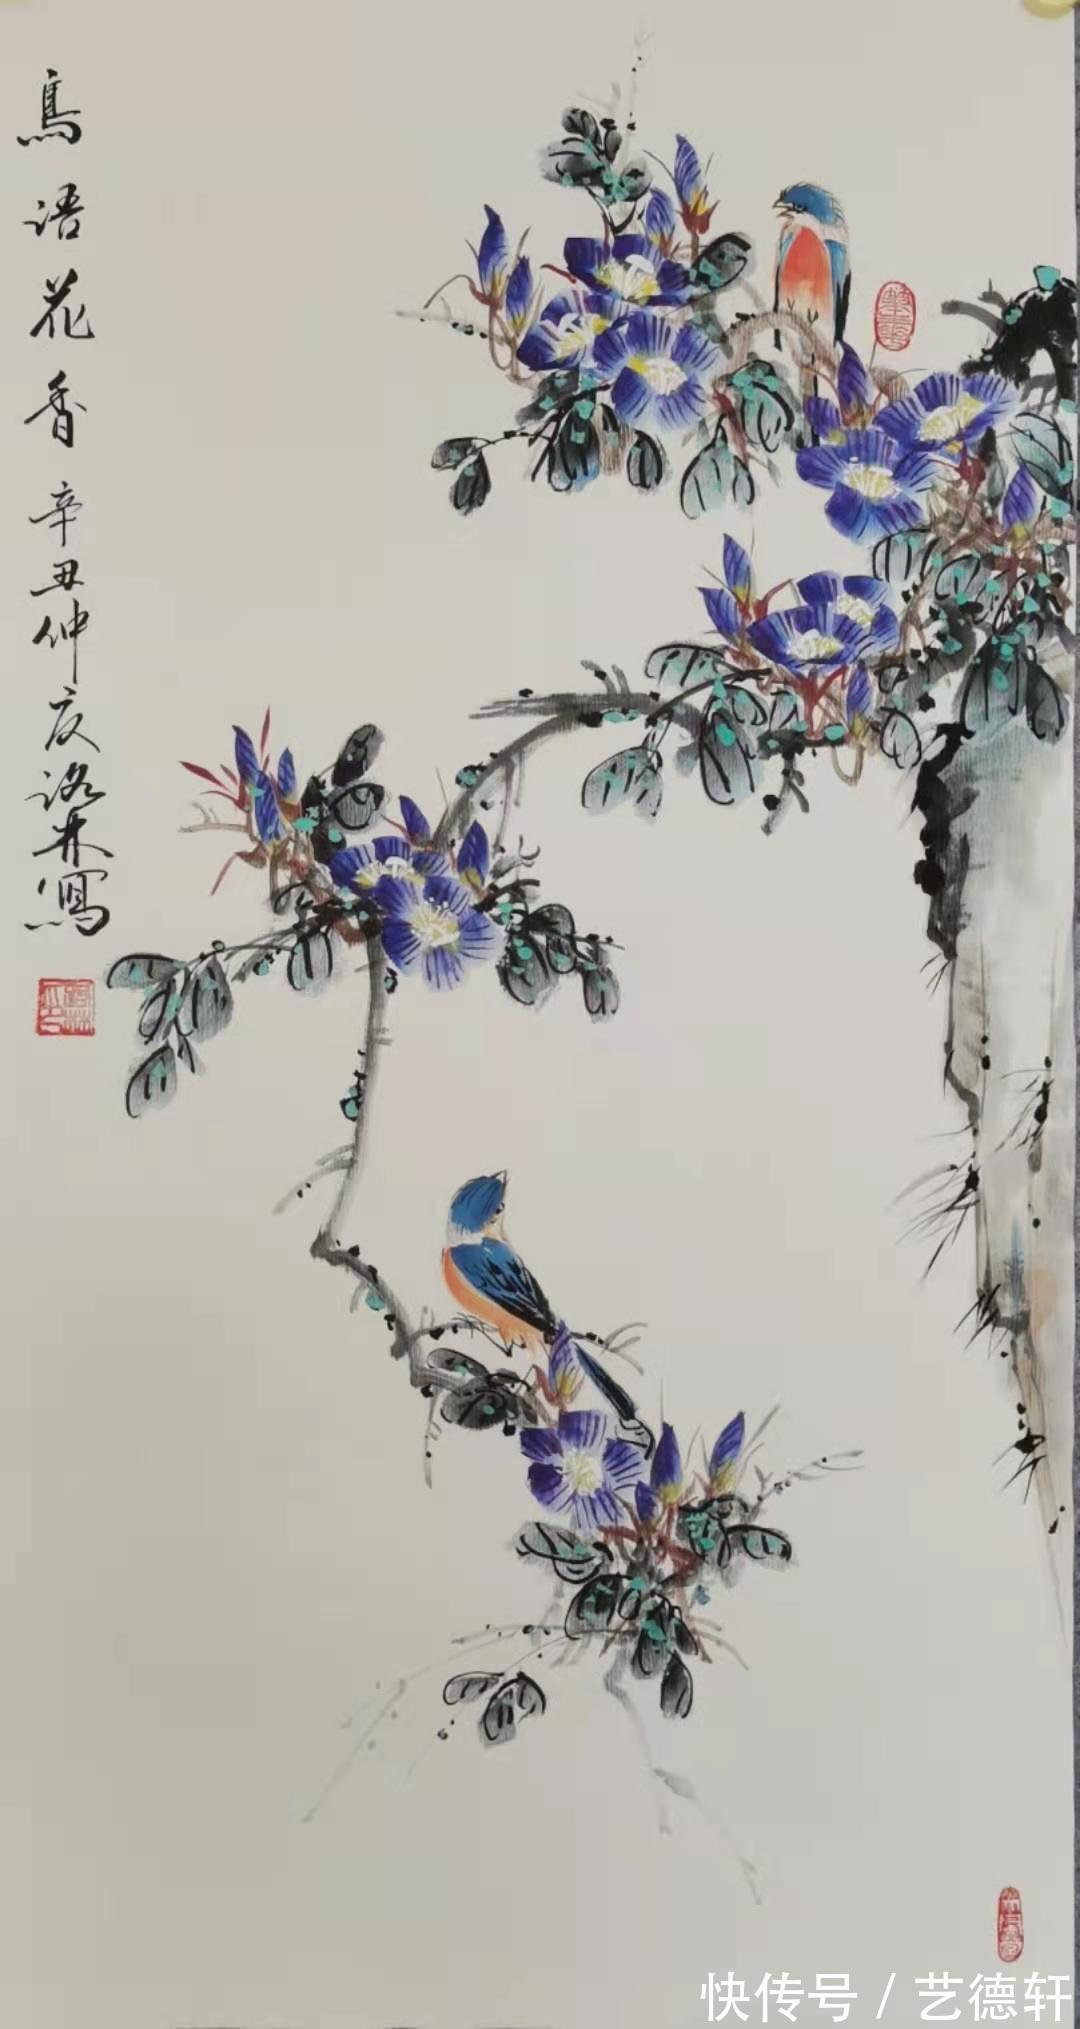 鳥语花香 辛丑仲夏 林寫
快传号 / 艺德轩